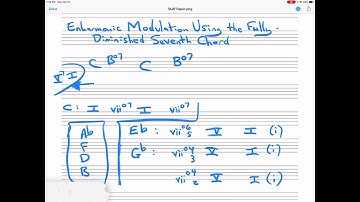 Staff Paper.png
Enharmonic Modulation Using the Fully-
Diminished Seventh Chord
C B°7 C B°7
V7 I
C: I vii°7 I vii°7
Ab Eb: vii°6/5 V I (i)
F
D Gb: vii°4/3 V I (i)
B vii°4/2 V I (i)